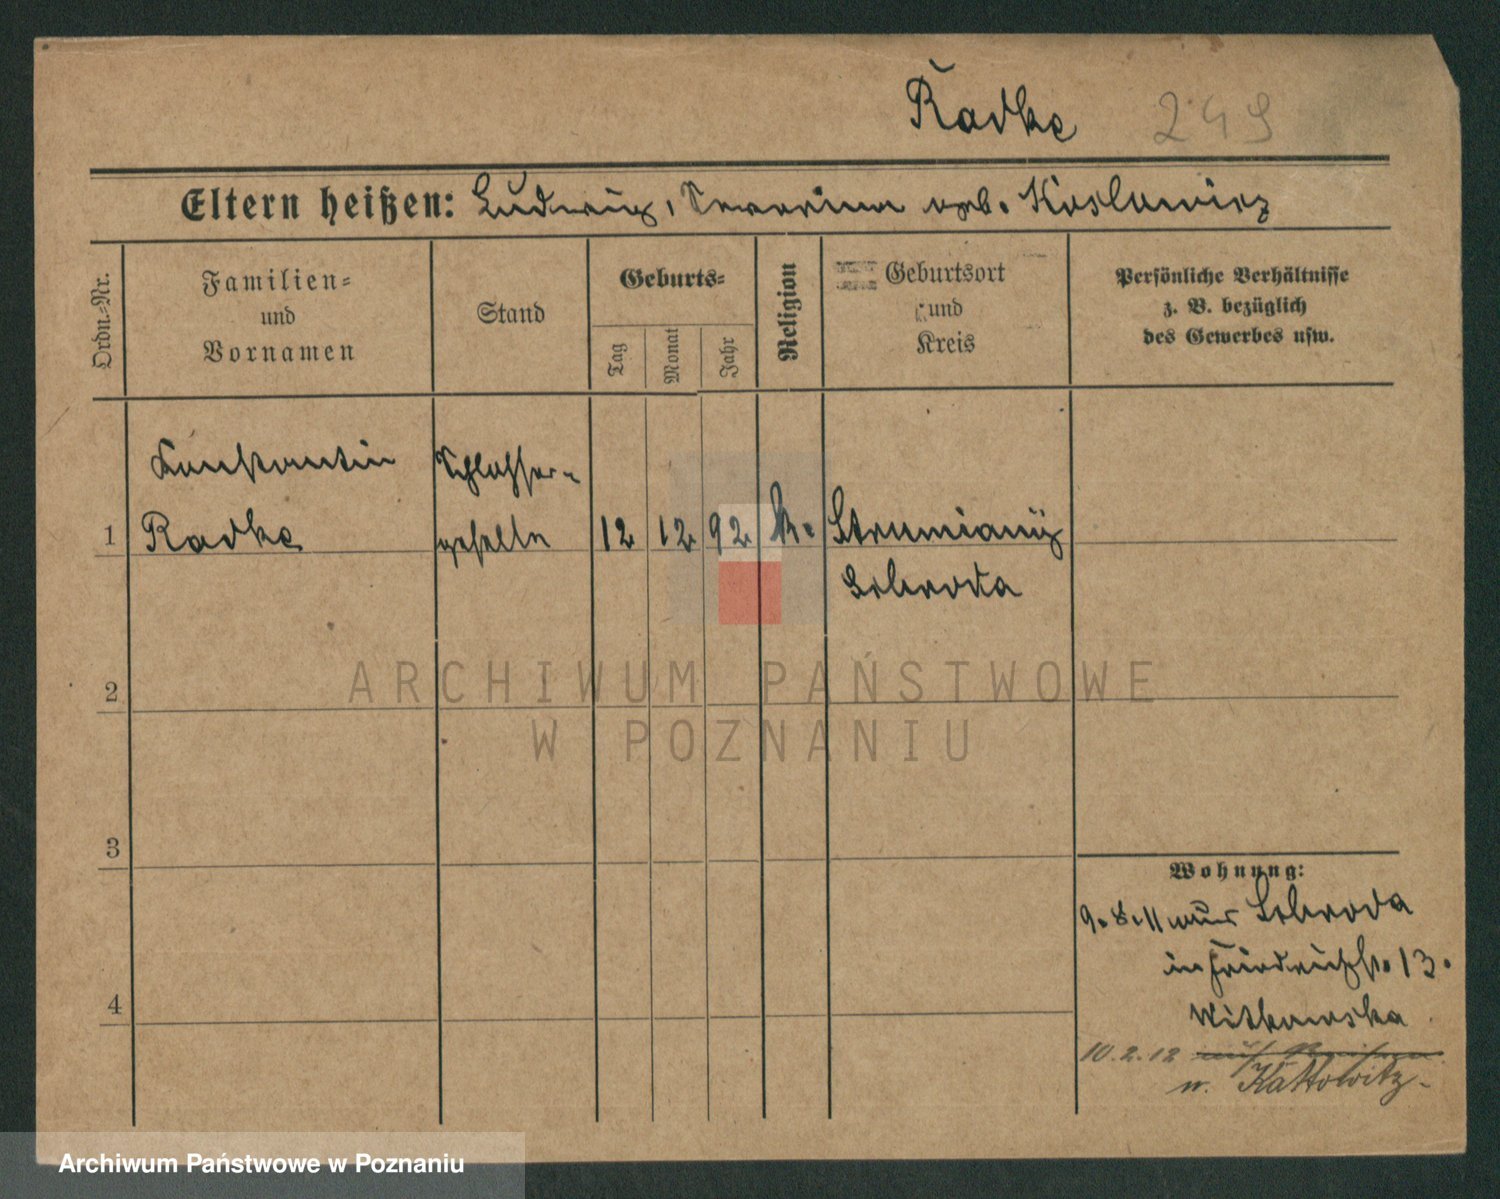 Radke 249
Eltern heißen: Ludwig, Severina geb. Koslowicz
Ordn.-Nr.
Familien-
und
Vornamen
Stand
Geburts-
Tag
Monat
Jahr
Religion
Geburtsort
und
Kreis
Persönliche Verhältnisse
z. B. bezüglich
des Gewerbes usw.
Konstantin Schlosser-
1 Radke geselle 12 12 92 k.
Schroda
2
3
4
ARCHIWUM PAŃSTWOWE
W POZNANIU
Wohnung:
9.8.11 aus Schroda
in Friedrichstr. 13.
Witkowska
10.2.12 auf Reisen
n. Kattowitz.
Archiwum Państwowe w Poznaniu